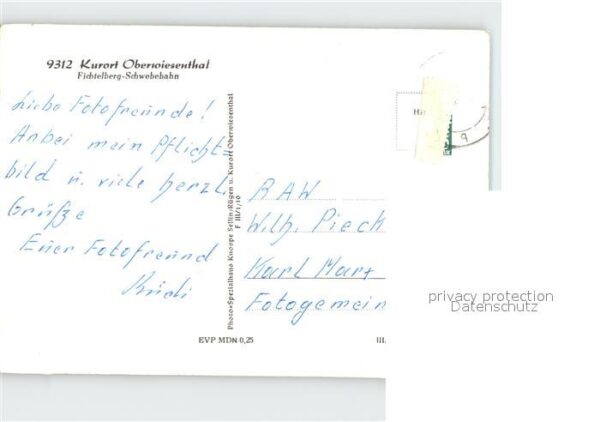 9312 Kurort Oberwiesenthal
Fichtelberg-Schwebebahn
Liebe Fotofreunde!
Anbei mein Pflicht=
bild u. viele herzl.
Grüße
Euer Fotofreund
Rudi
Photo-Spezialhaus Knospe Sellin/Rügen u. Kurort Oberwiesenthal
RAW
Wilh. Pieck
Karl Marx
Fotogemein
privacy protection
Datenschutz
EVP MDN 0,25
III.